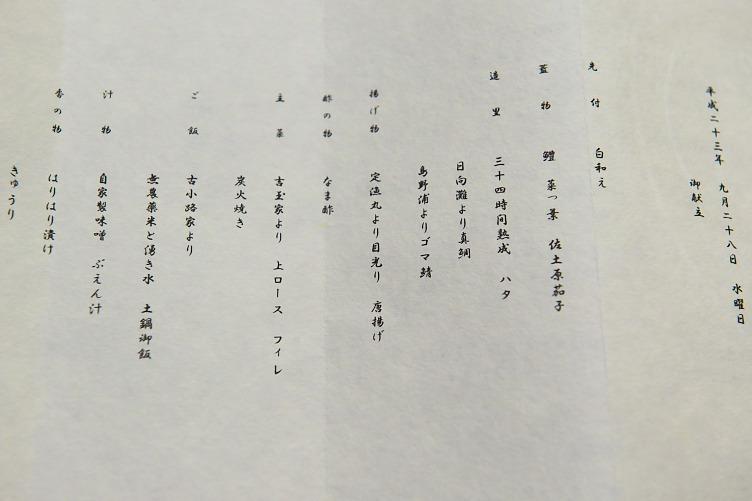 平成二十三年 九月二十八日 水曜日
御献立
先付 白和え
蓋物 鱧 菜っ葉 佐土原茄子
造里 三十四時間熟成 ハタ
日向灘より真鯛
島野浦よりゴマ鯖
揚げ物 定漁丸より目光り 唐揚げ
酢の物 なま酢
主菜 古玉家より 上ロース フィレ
炭火焼き
ご飯 古小路家より
無農薬米と湧き水 土鍋御飯
汁物 自家製味噌 ぶえん汁
香の物 はりはり漬け
きゅうり